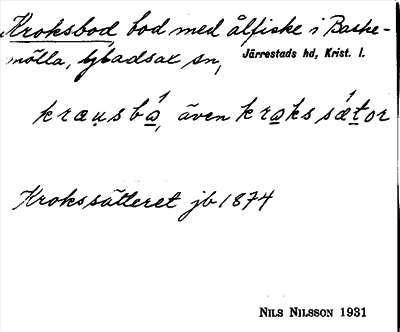 Kroksbod, bod med ålfiske i Baske-
mölla, Gladsax sn, Järrestads hd, Krist. l.
kræu̯sbá̱, även kra̱kssǽt̠or
Krokssätteret jb 1874
NILS NILSSON 1931